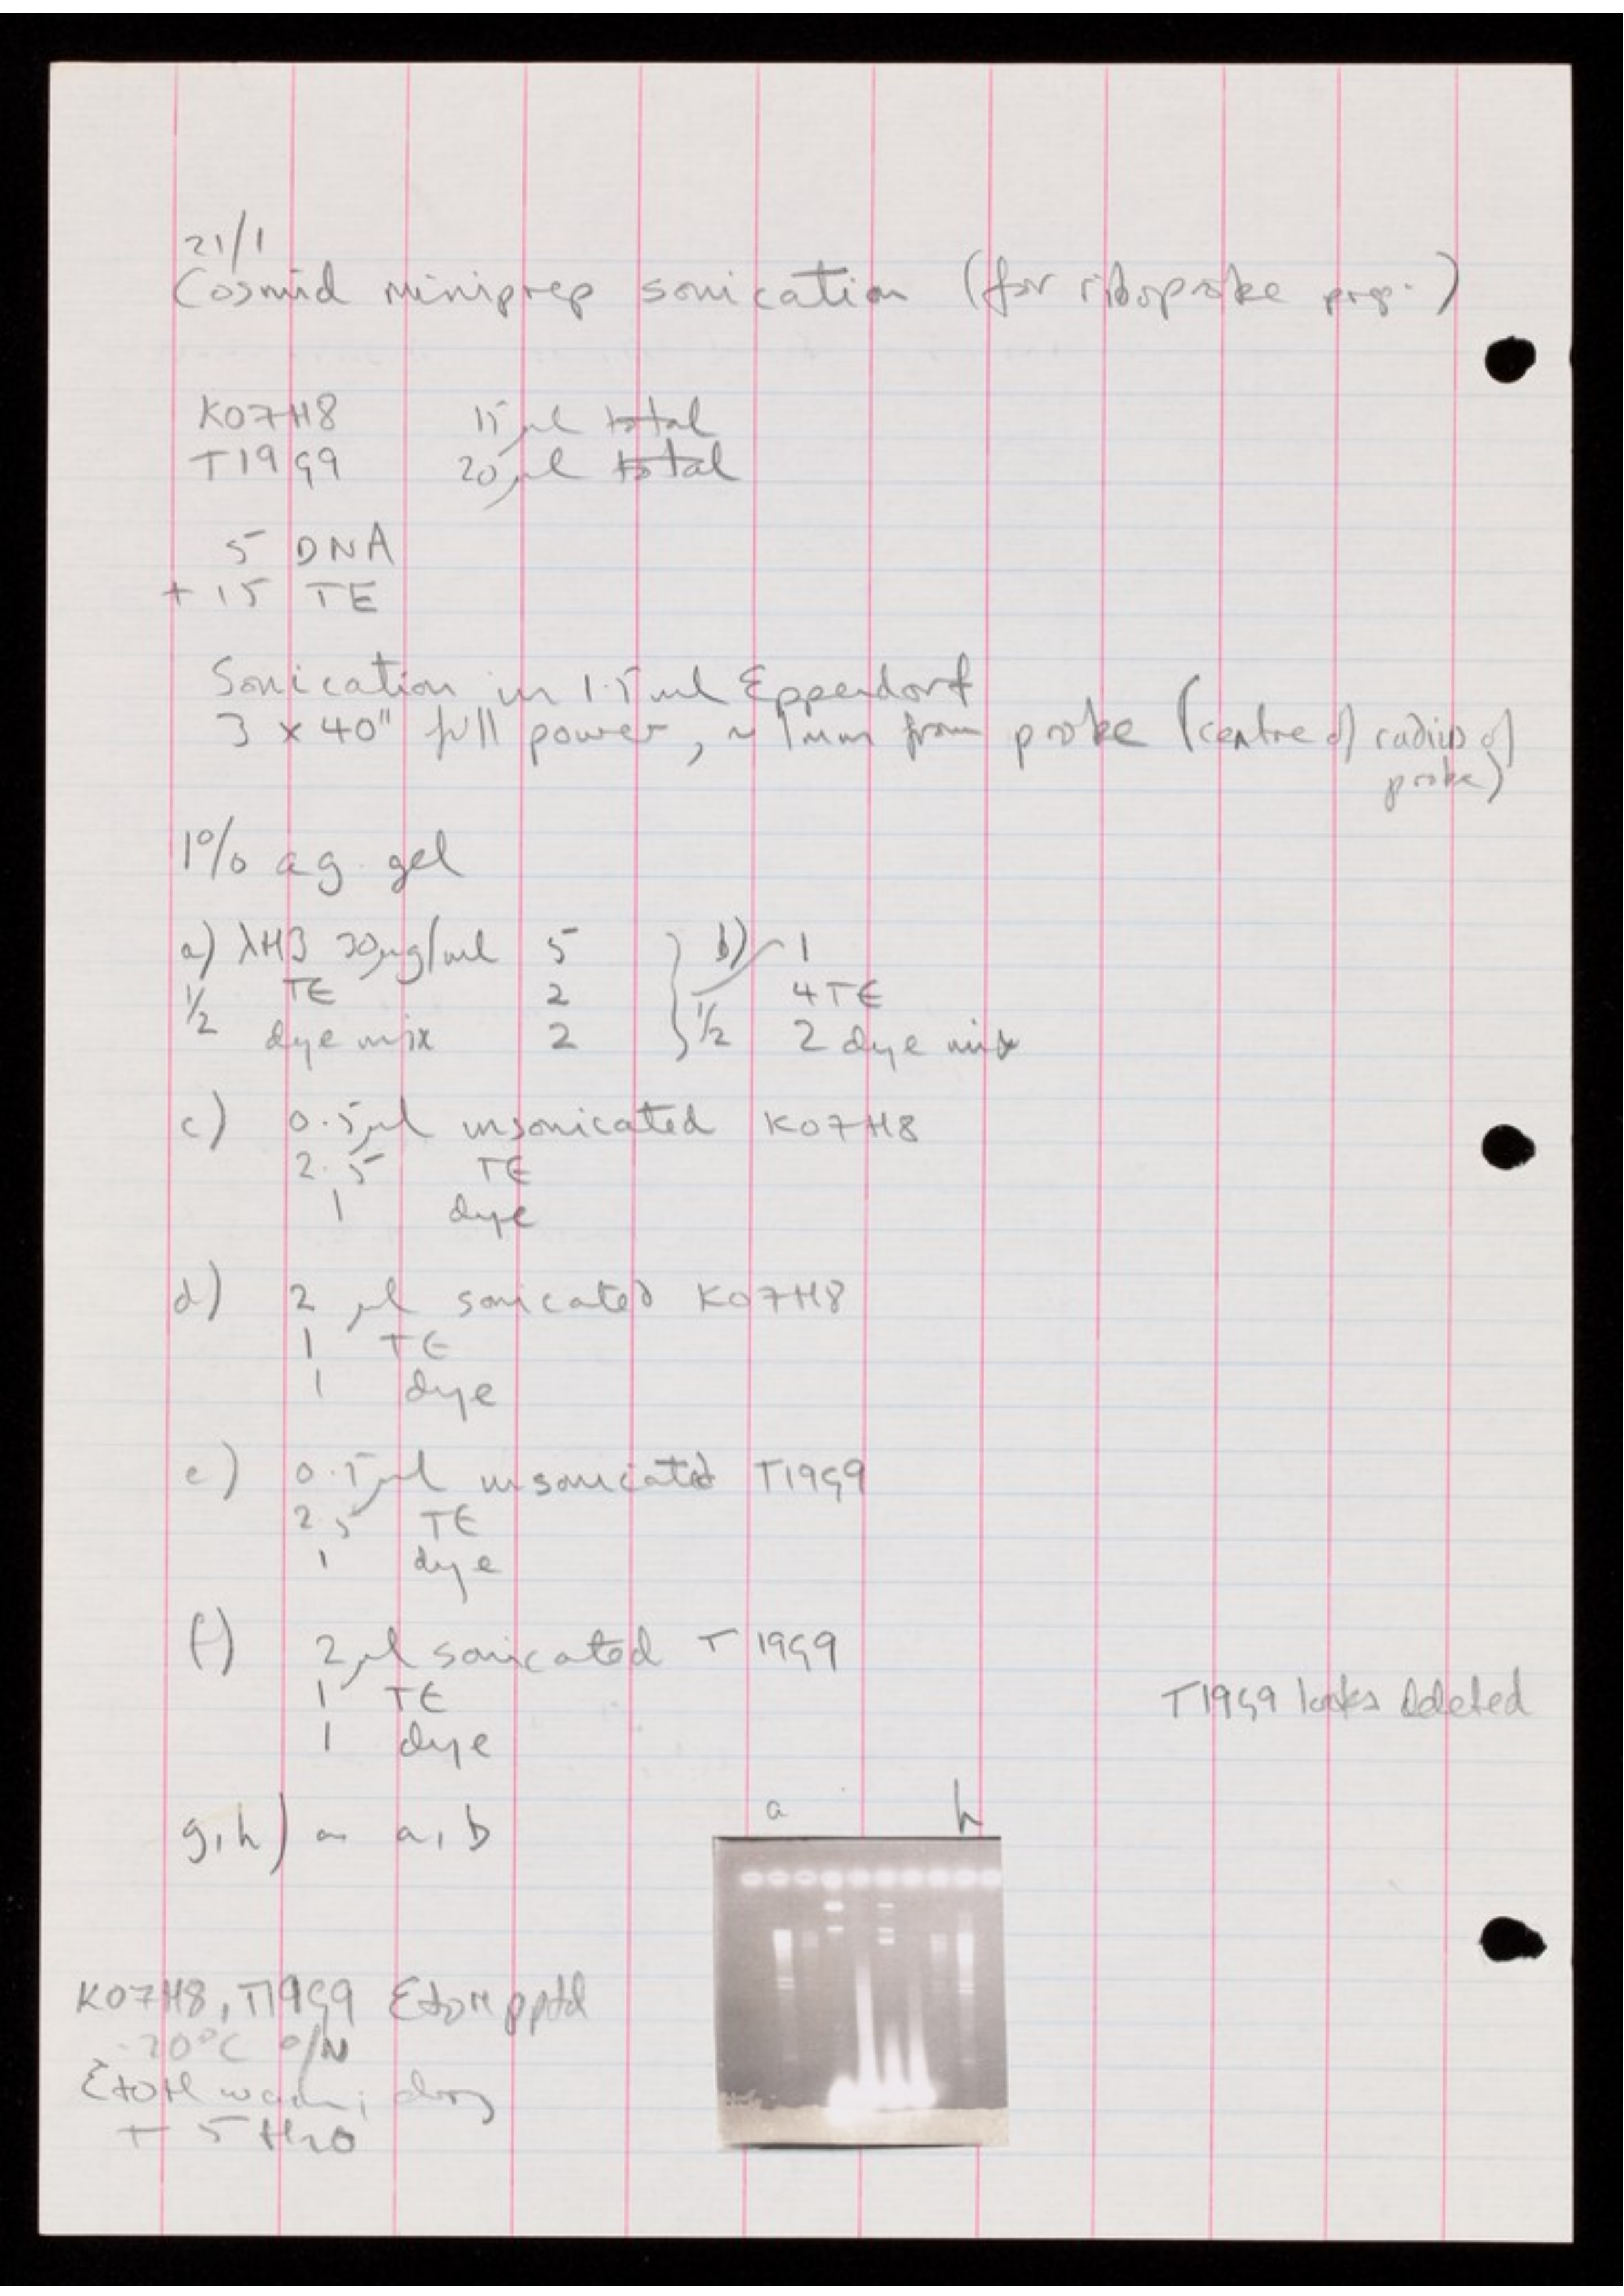 21/1
Cosmid miniprep sonication (for riboprobe prep.)
K07H8 15 µl total
T19G9 20 µl total
5 DNA
+ 15 TE
Sonication in 1.5 ml Eppendorf
3 x 40" full power, ~ 1mm from probe (centre of radius of
probe)
1% ag. gel
a) λH3 30µg/ml 5 } b) 1
1/2 TE 2 4 TE
dye mix 2 1/2 2 dye mix
c) 0.5µl unsonicated K07H8
2.5 TE
1 dye
d) 2 µl sonicated K07H8
1 TE
1 dye
e) 0.5µl unsonicated T19G9
2.5 TE
1 dye
f) 2µl sonicated T19G9
1 TE
1 dye
T19G9 looks deleted
g,h) as a, b
a h
K07H8, T19G9 EtOH pptd
-20°C o/N
EtOH wash; dry
+ 5 H2O